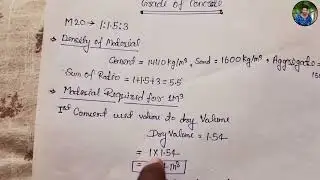 Grade of Concrete
M20 → 1:1.5:3
→ Density of Material
Cement = 1440 kg/m³, Sand = 1600 kg/m³, Aggregate =
Sum of Ratio = 1+1.5+3 = 5.5
→ Material Required for 1M³
Ist Convert wet volume to dry Volume
Dry Volume = 1.54
= 1 X 1.54
m³